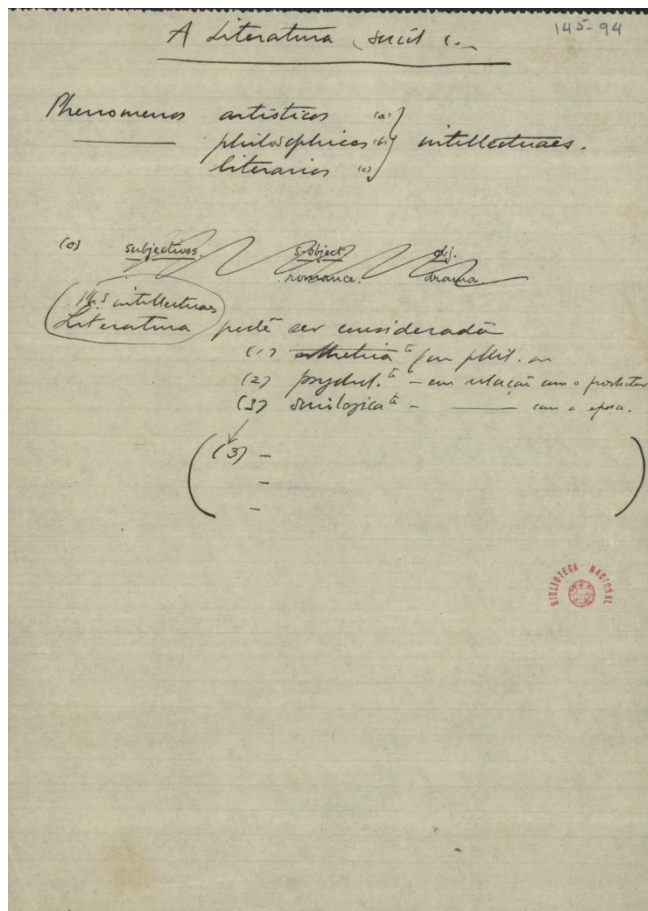 145-94
A Literatura
Phenomenos artisticos (a)
philosophicos (b) intellectuaes.
literarios (c)
(c) subjectivos. subject. obj.
romance. drama.
Ph.s intellectuaes
Literatura pode ser considerada
(1) esthetica te ou phil. ou
(2) psychol. te - em relação com o productor
(3) sociologica te - ——— com a epoca.
(3) -
-
-
BIBLIOTECA NACIONAL